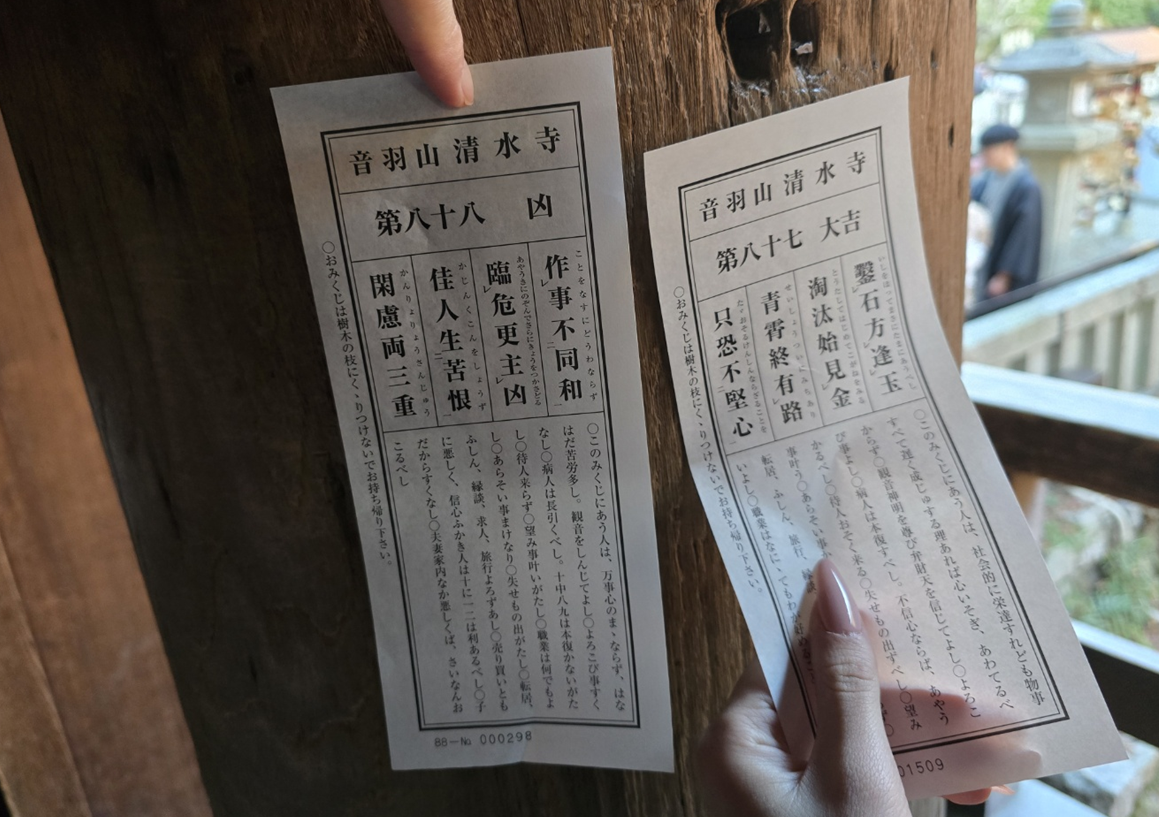 音羽山清水寺
第八十八 凶
作事不同和
ことをなすにどうわならず
臨危更主凶
あやうきにのぞんでさらにきょうをつかさどる
佳人生苦恨
かじんくこんをしょうず
閑慮両三重
かんりょりょうさんじゅう
〇このみくじにあう人は、万事心のまゝならず、はな
はだ苦労多し。観音をしんじてよし〇よろこび事すく
なし〇病人は長引くべし。十中八九は本復かないがた
し〇待人来らず〇望み事叶いがたし〇職業は何でもよ
し〇あらそい事まけなり〇失せもの出がたし〇転居、
ふしん、縁談、求人、旅行よろずあし〇売り買いとも
に悪しく、信心ふかき人は十に一二は利あるべし〇子
だからすくなし〇夫妻家内なか悪しくば、さいなんお
こるべし
〇おみくじは樹木の枝にくゝりつけないでお持ち帰り下さい。
88—No 000298
音羽山清水寺
第八十七 大吉
鑿石方逢玉
淘汰始見金
とうたしてはじめてこがねをみる
青霄終有路
せいしょうついにみちあり
只恐不堅心
たゞおそるけんしんならざることを
〇このみくじにあう人は、社会的に栄達すれども物事
すべて遅く成じゅする理あれば心いそぎ、あわてるべ
からず〇観音神明を尊び弁財天を信じてよし〇よろこ
び事よし〇病人は本復すべし。不信心ならば、あやう
かるべし〇待人おそく来る〇失せもの出ずべし〇望み
事叶う〇あらそい事
転居、ふしん、旅行、
いよし〇職業はなにゝてもわ
〇おみくじは樹木の枝にくゝりつけないでお持ち帰り下さい。
01509